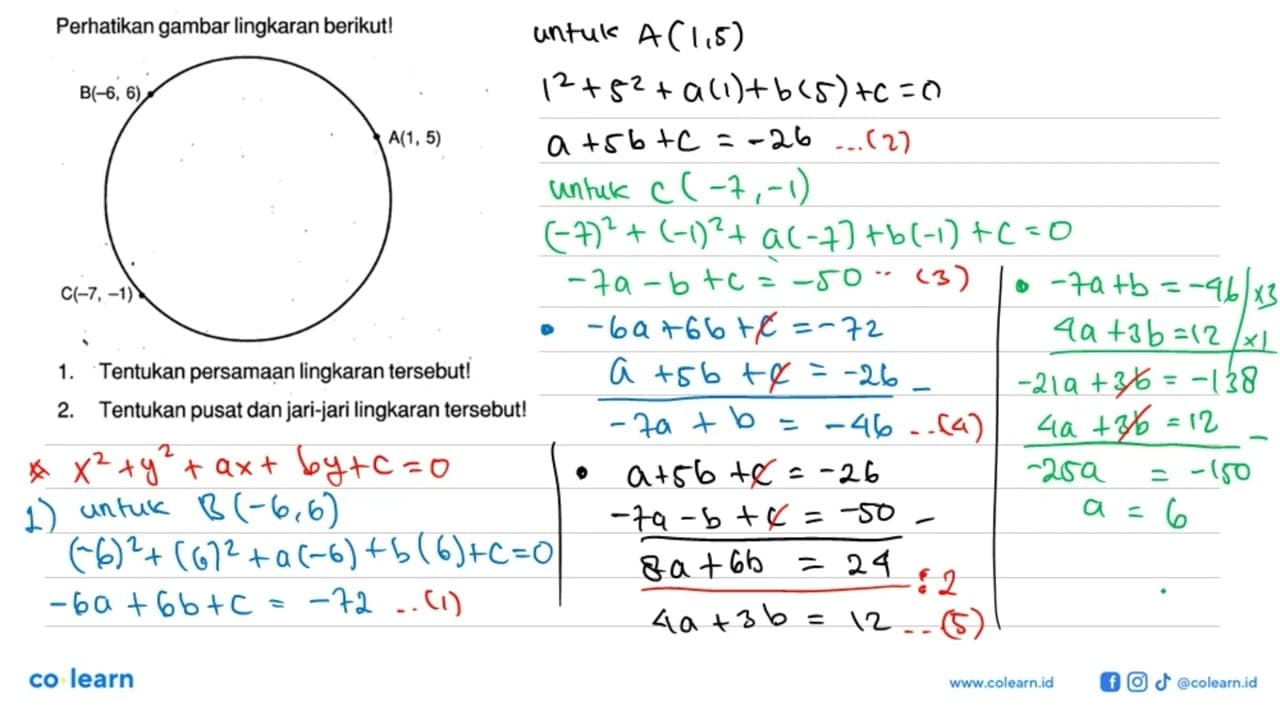 Perhatikan gambar lingkaran berikut!
B(–6, 6)
A(1, 5)
C(–7, –1)
1. Tentukan persamaan lingkaran tersebut!
2. Tentukan pusat dan jari-jari lingkaran tersebut!
* x² + y² + ax + by + c = 0
1) untuk B(-6,6)
(-6)² + (6)² + a(-6) + b(6) + c = 0
-6a + 6b + c = -72 ..(1)
untuk A(1,5)
1² + 5² + a(1) + b(5) + c = 0
a + 5b + c = -26 ...(2)
untuk C(-7,-1)
(-7)² + (-1)² + a(-7) + b(-1) + c = 0
-7a - b + c = -50 .. (3)
• -6a + 6b + c = -72
a + 5b + c = -26 -
-7a + b = -46 ..(4)
• a + 5b + c = -26
-7a - b + c = -50 -
8a + 6b = 24 : 2
4a + 3b = 12 ..(5)
• -7a + b = -46 | x3
4a + 3b = 12 | x1
-21a + 3b = -138
4a + 3b = 12 -
-25a = -150
a = 6
co learn
www.colearn.id
@colearn.id